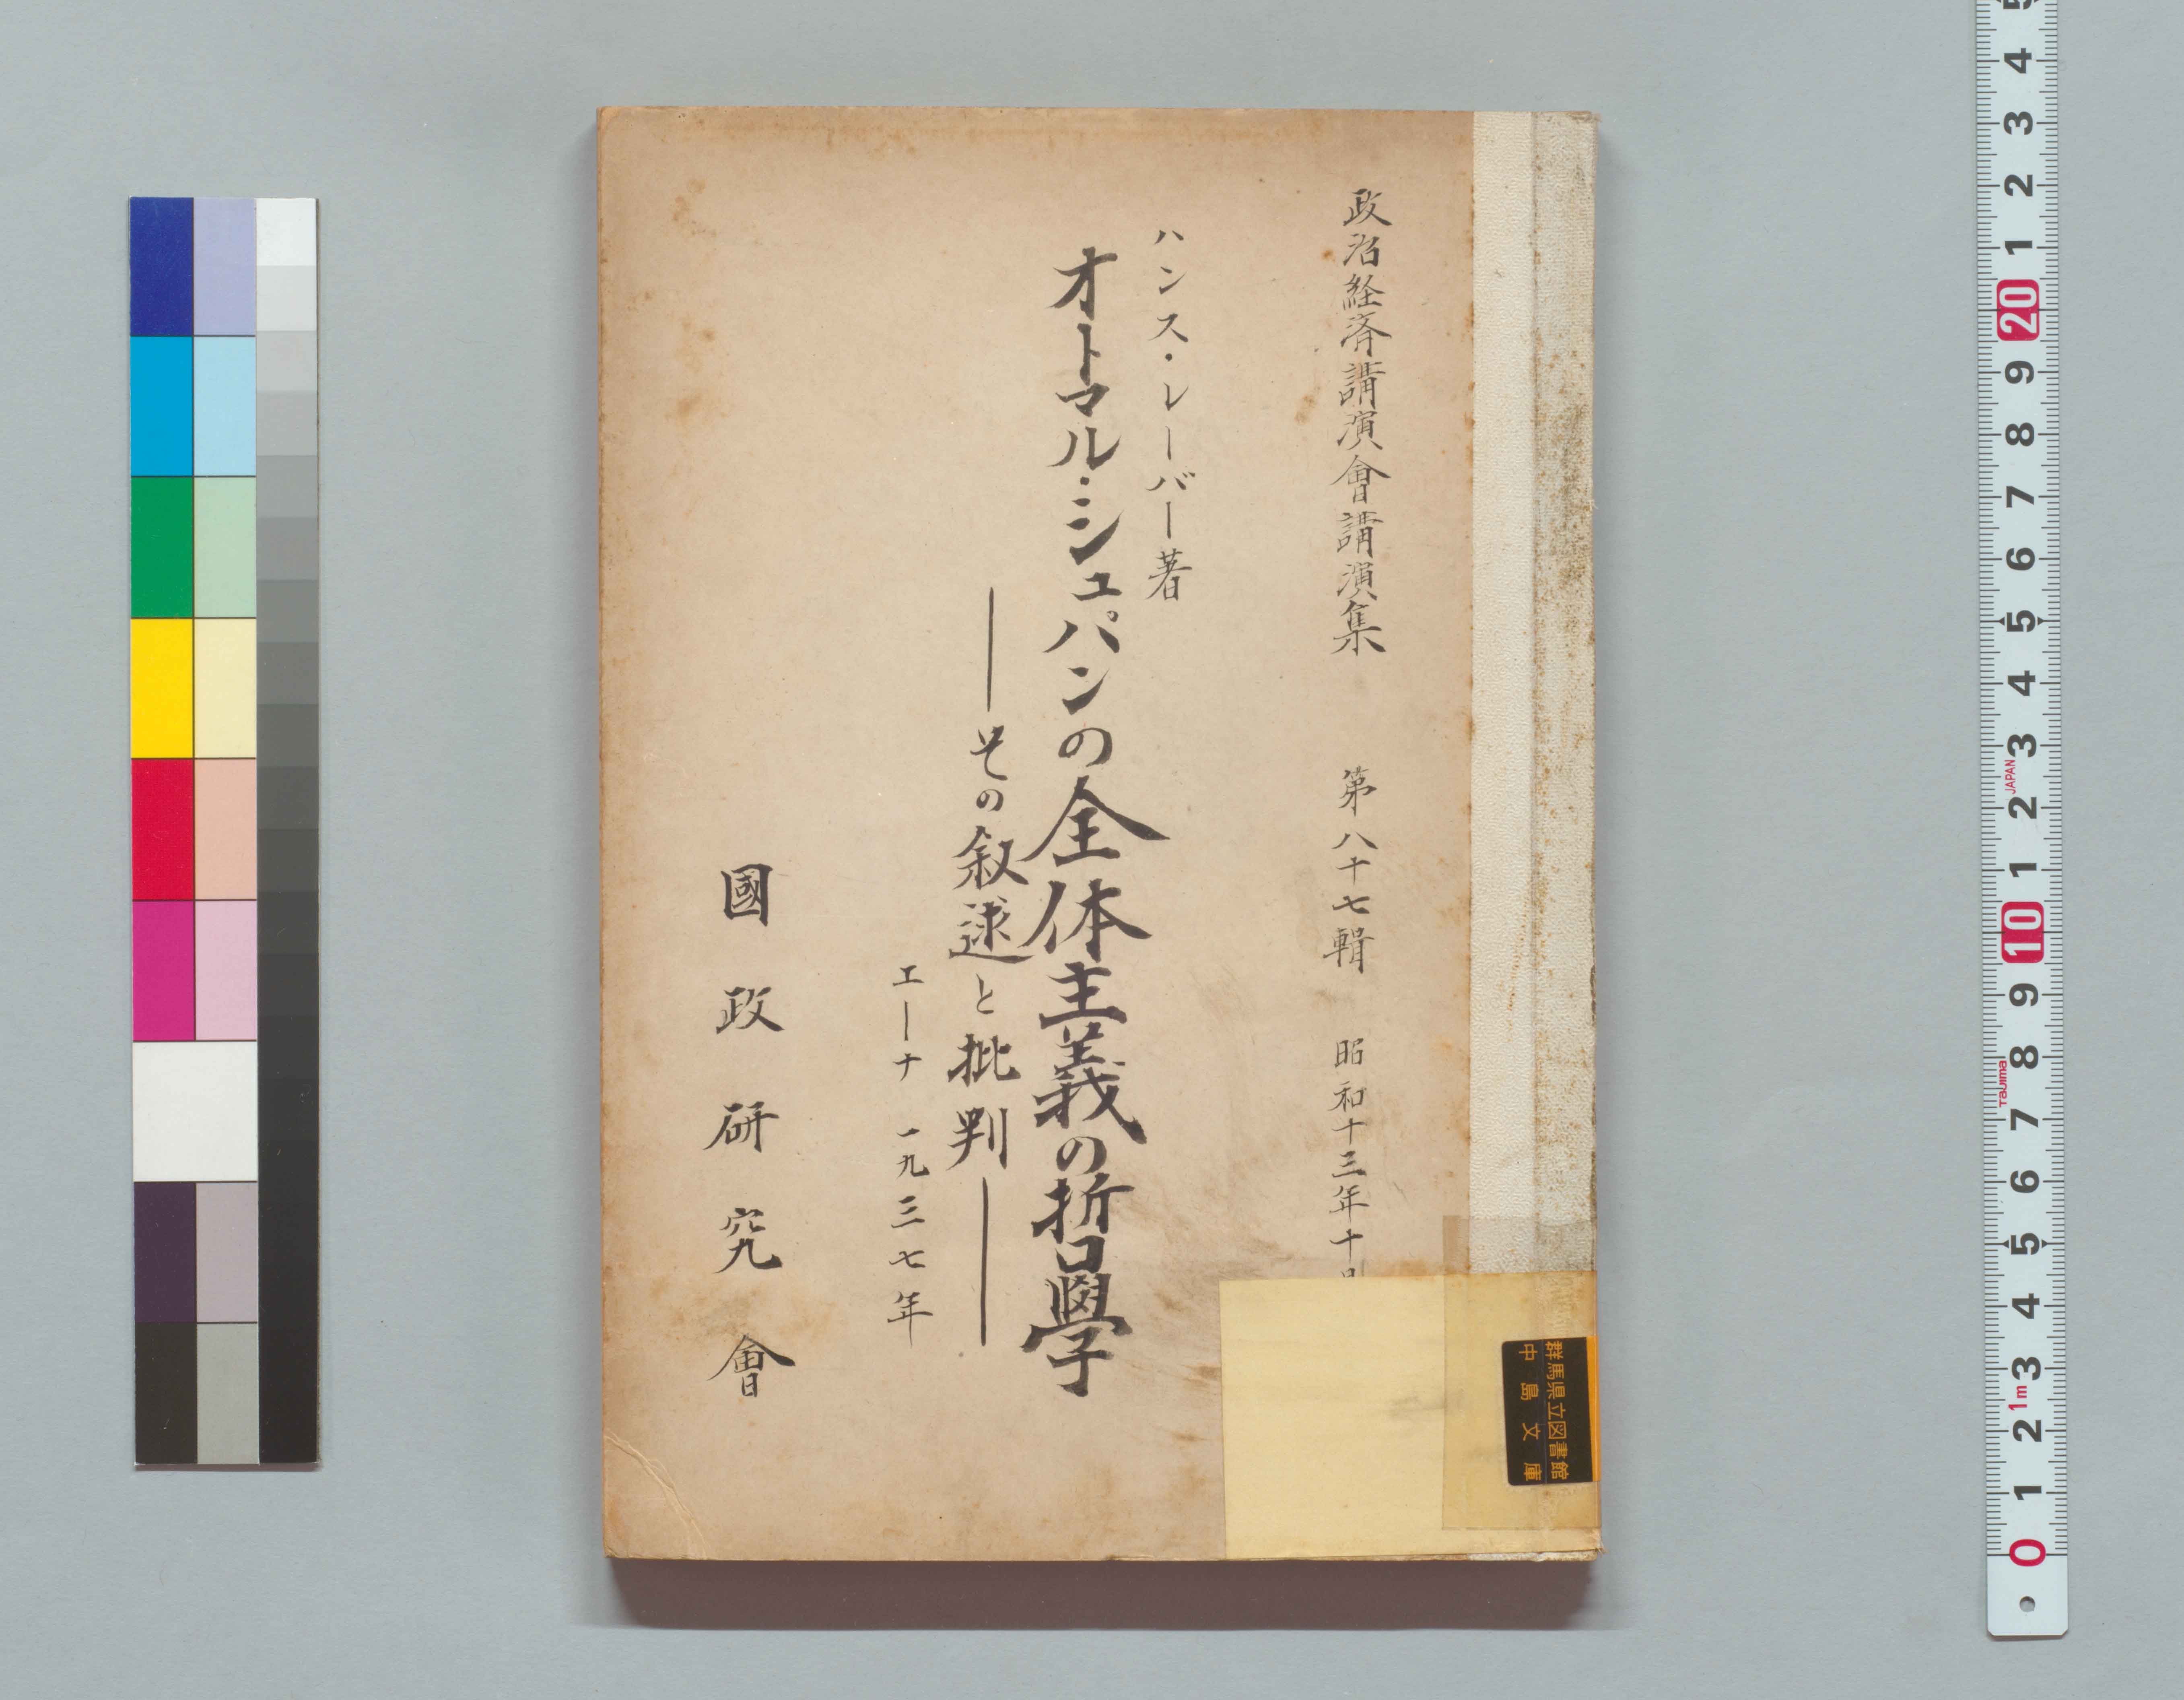 政治経済講演會講演集　第八十七輯　昭和十三年十月
ハンス・レーバー著
オトマル・シュパンの全体主義の哲學
――その叙述と批判――
エーナ　一九三七年
國政研究會
群馬県立図書館
中島文庫
5
4
3
2
1
20
9
8
7
6
5
4
3
JAPAN
2
1
10
9
8
Tajima
7
6
5
4
3
1m
2
1
0